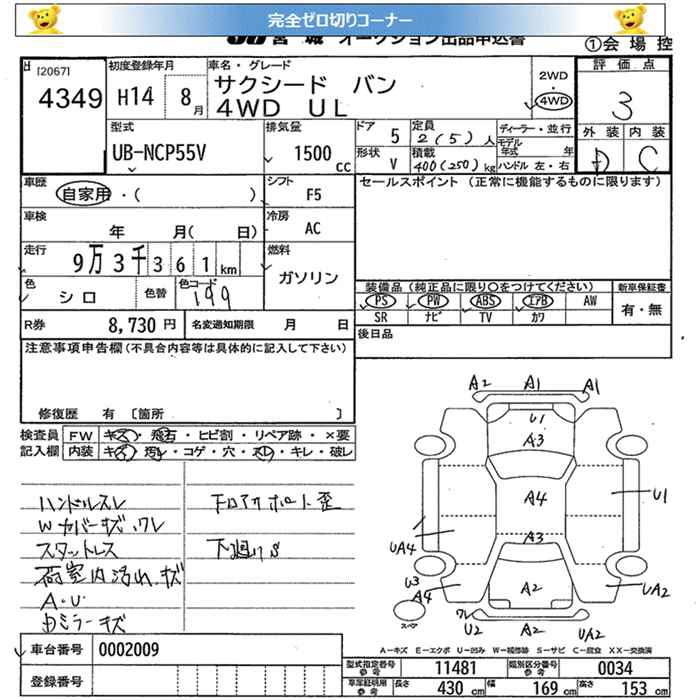 完全ゼロ切りコーナー
JU宮城 オークション出品申込書
①会場控
[2067]
4349
初度登録年月
H14 8月
車名・グレード
サクシード バン
4WD UL
2WD
・
4WD
評価点
3
外装 内装
D C
型式
UB-NCP55V
排気量
1500 cc
ドア 5
形状 V
定員 2(5)人
積載 400(250)kg
ディーラー・並行
モデル年式 年
ハンドル 左・右
車歴
自家用・( )
シフト F5
セールスポイント (正常に機能するものに限ります)
車検
年 月( 日)
冷房 AC
走行
9万3千361km
燃料
ガソリン
色
シロ
色替
色コード
199
装備品 (純正品に限り○をつけてください)
新車保証書
PS PW ABS エアB AW
SR ナビ TV カワ
有・無
R券 8,730円
名変通知期限 月 日
後日品
注意事項申告欄(不具合内容等は具体的に記入して下さい)
修復歴 有 [箇所 ]
検査員記入欄
FW キズ・飛石・ヒビ割・リペア跡・×要
内装 キズ・汚れ・コゲ・穴・スレ・キレ・破レ
ハンドルスレ
Wカバーキズ、ワレ
スタットレス
荷室内汚れ、キズ
A・U
内ミラーキズ
下廻りS
A2 A1 A1
U1
A3
A4
U1
UA4
A3
U3
A4
A2
UA2
ワレ
U2 A2 UA2
スペア
A-キズ E-エクボ U-凹み W-補修跡 S-サビ C-腐食 XX-交換済
車台番号 0002009
登録番号
型式指定番号参考 11481
類別区分番号参考 0034
車庫証明用参考 長さ 430 cm 幅 169 cm 高さ 153 cm